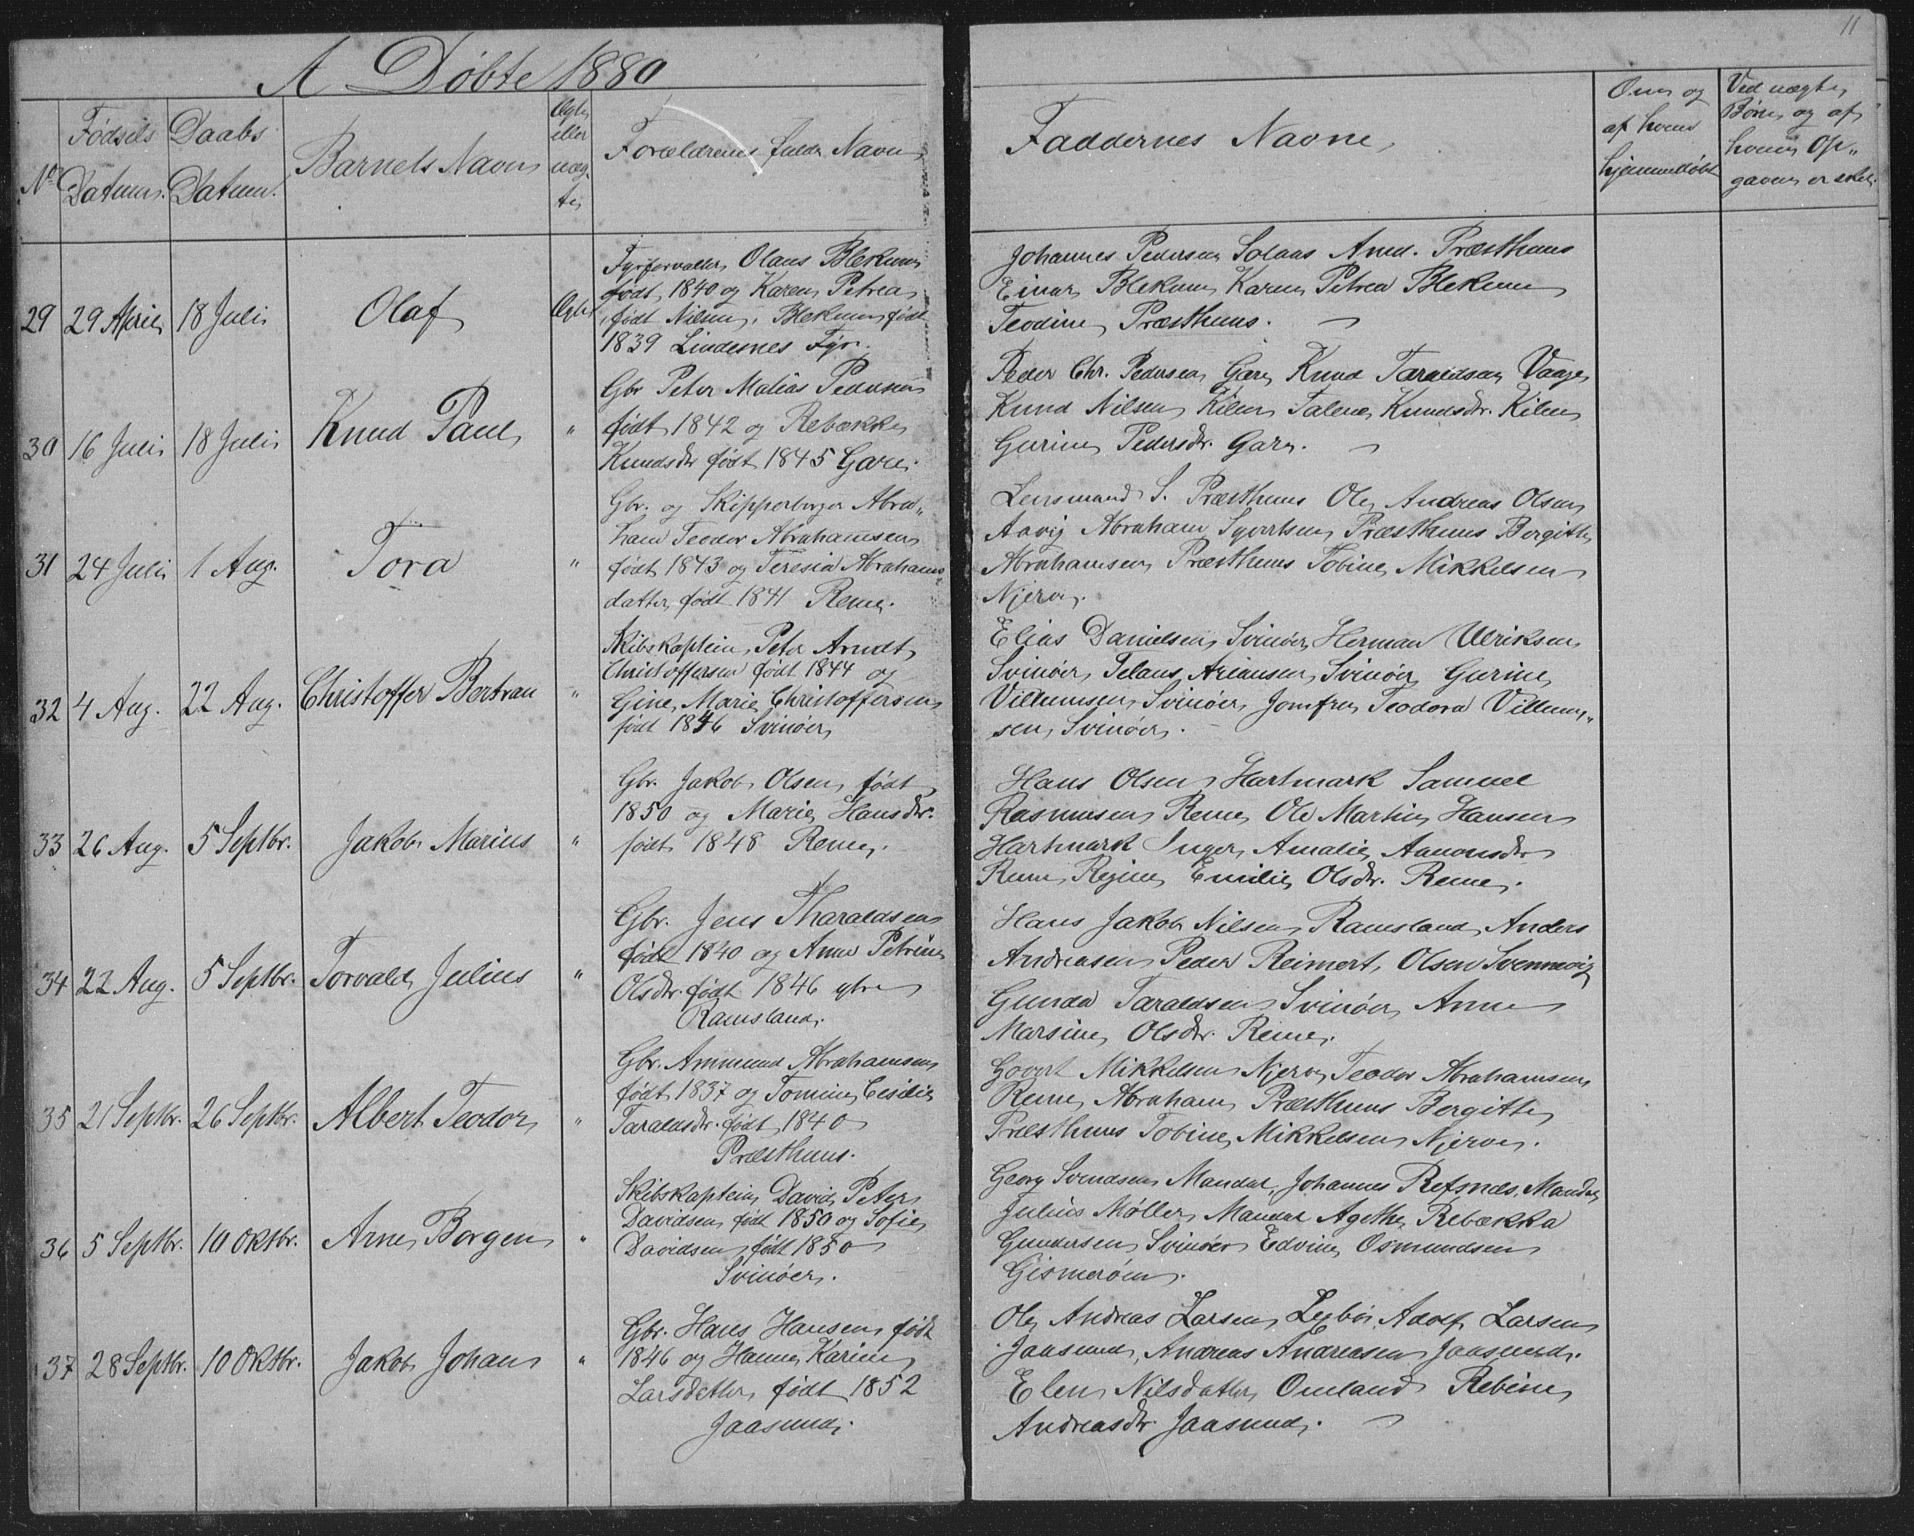 11
A Døbte 1880
No
Fødsels Datum.
Daabs Datum.
Barnets Navn
Ægte eller uægte
Forældrenes fulde Navn
Faddernes Navne
Om og af hvem hjemmedøbt
Ved uægte Børn og af hvem Opgaven er
29 29 April 18 Juli Olaf Ægte
Fyrforvalter Olaus Blekum
født 1840 og Karen Petrea
født Nilsen, Blekum født
1839 Lindesnes Fyr.
Johannes Pedersen Solaas Amd. Præsthuus
Einar Blekum Karen Petrea Blekum
Teodine Præsthuus. —
30 16 Juli 18 Juli Knud Paul "
Gbr Peter Matias Pedersen
født 1842 og Rebække
Knudsdr født 1845 Gare.
Peder Chr. Pedersen Gare Knud Taraldsen Vaage
Knud Nilsen Kilen Talene Knudsdr. Kilen
Gurine Pedersdr. Gare. —
31 24 Juli 1 Aug. Tora "
Gbr. og Skipperborger Abra„
ham Teodor Abrahamsen
født 1843 og Teresia Abrahams
datter født 1841 Reme.
Lensmand S. Præsthuus Ole Andreas Olsen
Aavig Abraham Syvertsen Præsthuus Bergitte
Abrahamsen Præsthuus Tobine Mikkelsen
Njerve.
32 4 Aug. 22 Aug. Christoffer Bertran "
Skibskaptein Peter Arndt
Christoffersen født 1844 og
Gine Marie Christoffersen
født 1846 Svinøer
Elias Danielsen Svinøer Herman Ulriksen
Svinøer, Ariansen Svinøer Gurine
Villumsen Svinøer, Jomfru Teodora Villum„
sen Svinøer.
33 26 Aug. 5 Septbr. Jakob Marius "
Gbr. Jakob Olsen født
1850 og Marie Hansdr.
født 1848 Reme.
Hans Olsen Hartmark Samuel
Rasmussen Reme Ole Martin Hansen
Hartmark Inger Amalie Aanonsdr
Reme, Regine Emilie Olsdr. Reme.
34 22 Aug. 5 Septbr. Torvald Julius "
Gbr. Jens Tharaldsen
født 1840 og Anne Petrine
Olsdr. født 1846 ytre
Ramsland.
Hans Jakob Nilsen Ramsland Anders
Andreasen Peder Reimert Olsen Svennevig
Gunda Taraldsen Svinøer Anne
Marsine Olsdr. Reme.
35 21 Septbr. 26 Septbr. Albert Teodor "
Gbr. Ammund Abrahamsen
født 1837 og Tomine Cesilie
Taraldsdr. født 1840
Præsthuus.
Govert Mikkelsen Njerve Teodor Abrahamsen
Reme Abraham Præsthuus Bergitte
Præsthuus Tobine Mikkelsen Njerve.
36 5 Septbr. 10 Oktbr. Arne Borgen "
Skibskaptein David Peter
Davidsen født 1850 og Sofie
Davidsen født 1850
Svinøer.
Georg Svendsen Mandal, Johannes Refsnes, Mandal
Julius Møller Mandal Agethe Rebækka
Gundersen Svinøer Edvine Osmundsen
Gismerøen.
37 28 Septbr. 10 Oktbr. Jakob Johan "
Gbr. Hans Hansen født
1846 og Hanne Karine
Larsdatter født 1852
Jaasund.
Ole Andreas Larsen Adolf Larsen
Jaasund, Andreas Andreasen Jaasund.
Elen Nilsdatter Omland Rebine
Andreasdr. Jaasund. —